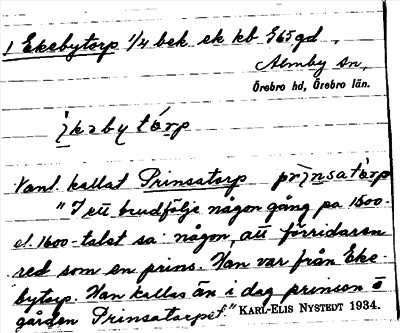 1 Ekebytorp 1/4 bek ek kb 965 gd,
Almby sn,
Örebro hd, Örebro län.
ì̜kəby tárp
Vanl. kallat Prinsatorp prìnsatàrp
"I ett brudfölje någon gång på 1500-
el. 1600-talet sa någon, att förridaren
red som en prins. Han var från Eke-
bytorp. Han kallas än i dag prinsen o
gården Prinsatorpet." KARL-ELIS NYSTEDT 1934.